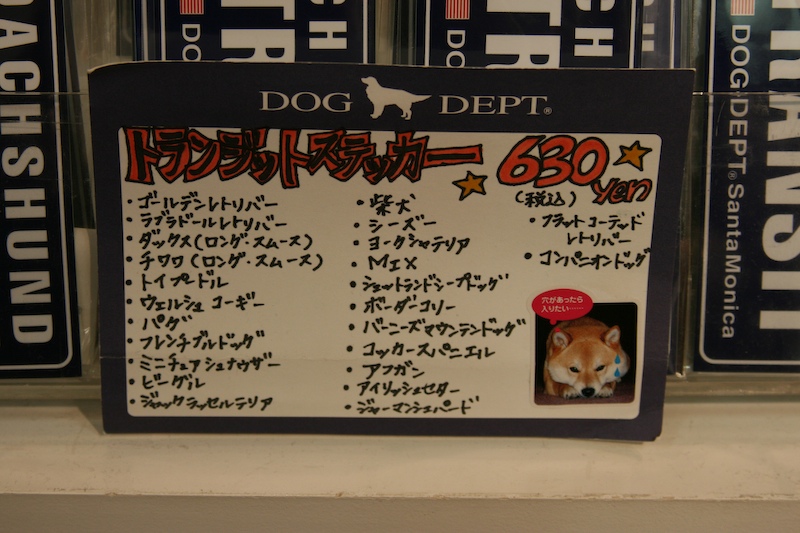 DOG DEPT®
トランジットステッカー 630 yen
(税込)
・ゴールデンレトリバー
・ラブラドールレトリバー
・ダックス(ロング・スムース)
・チワワ(ロング・スムース)
・トイプードル
・ウェルシュコーギー
・パグ
・フレンチブルドッグ
・ミニチュアシュナウザー
・ビーグル
・ジャックラッセルテリア
・柴犬
・シーズー
・ヨークシャテリア
・MIX
・シェットランドシープドッグ
・ボーダーコリー
・バーニーズマウンテンドッグ
・コッカースパニエル
・アフガン
・アイリッシュセター
・ジャーマンシェパード
・フラットコーテッド
レトリバー
・コンパニオンドッグ
穴があったら
入りたい……
DACHSHUND
DOG DEPT® Santa Monica
TRANSIT
CH
TR
DO
CH
TR
DO